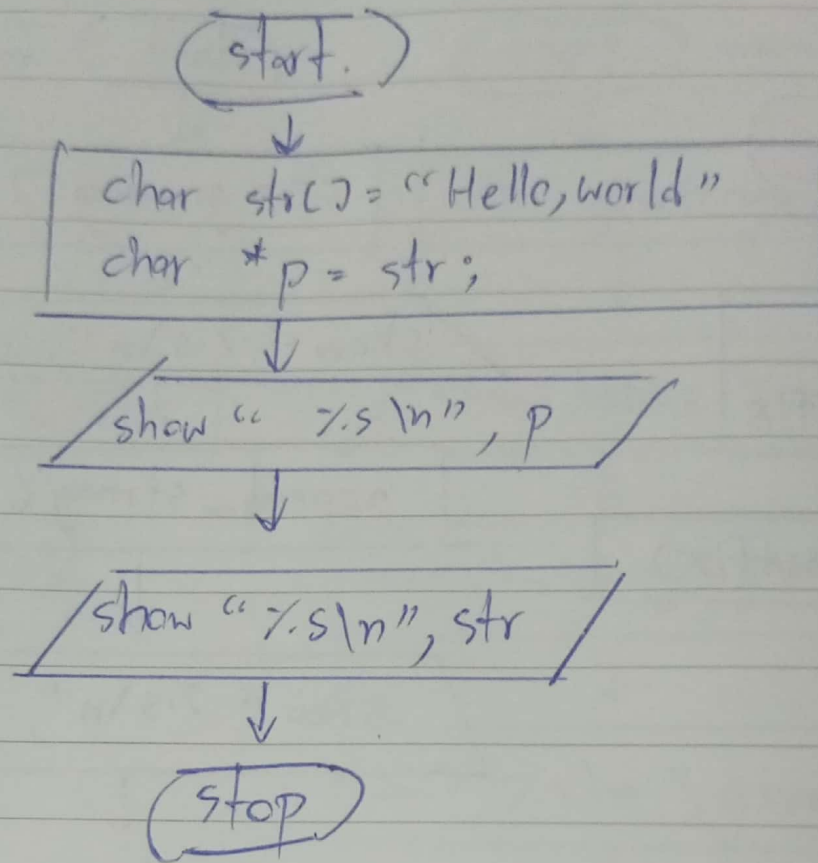 start.
char str[] = "Hello, world"
char *p = str;
show " %s \n", p
show "%s\n", str
stop